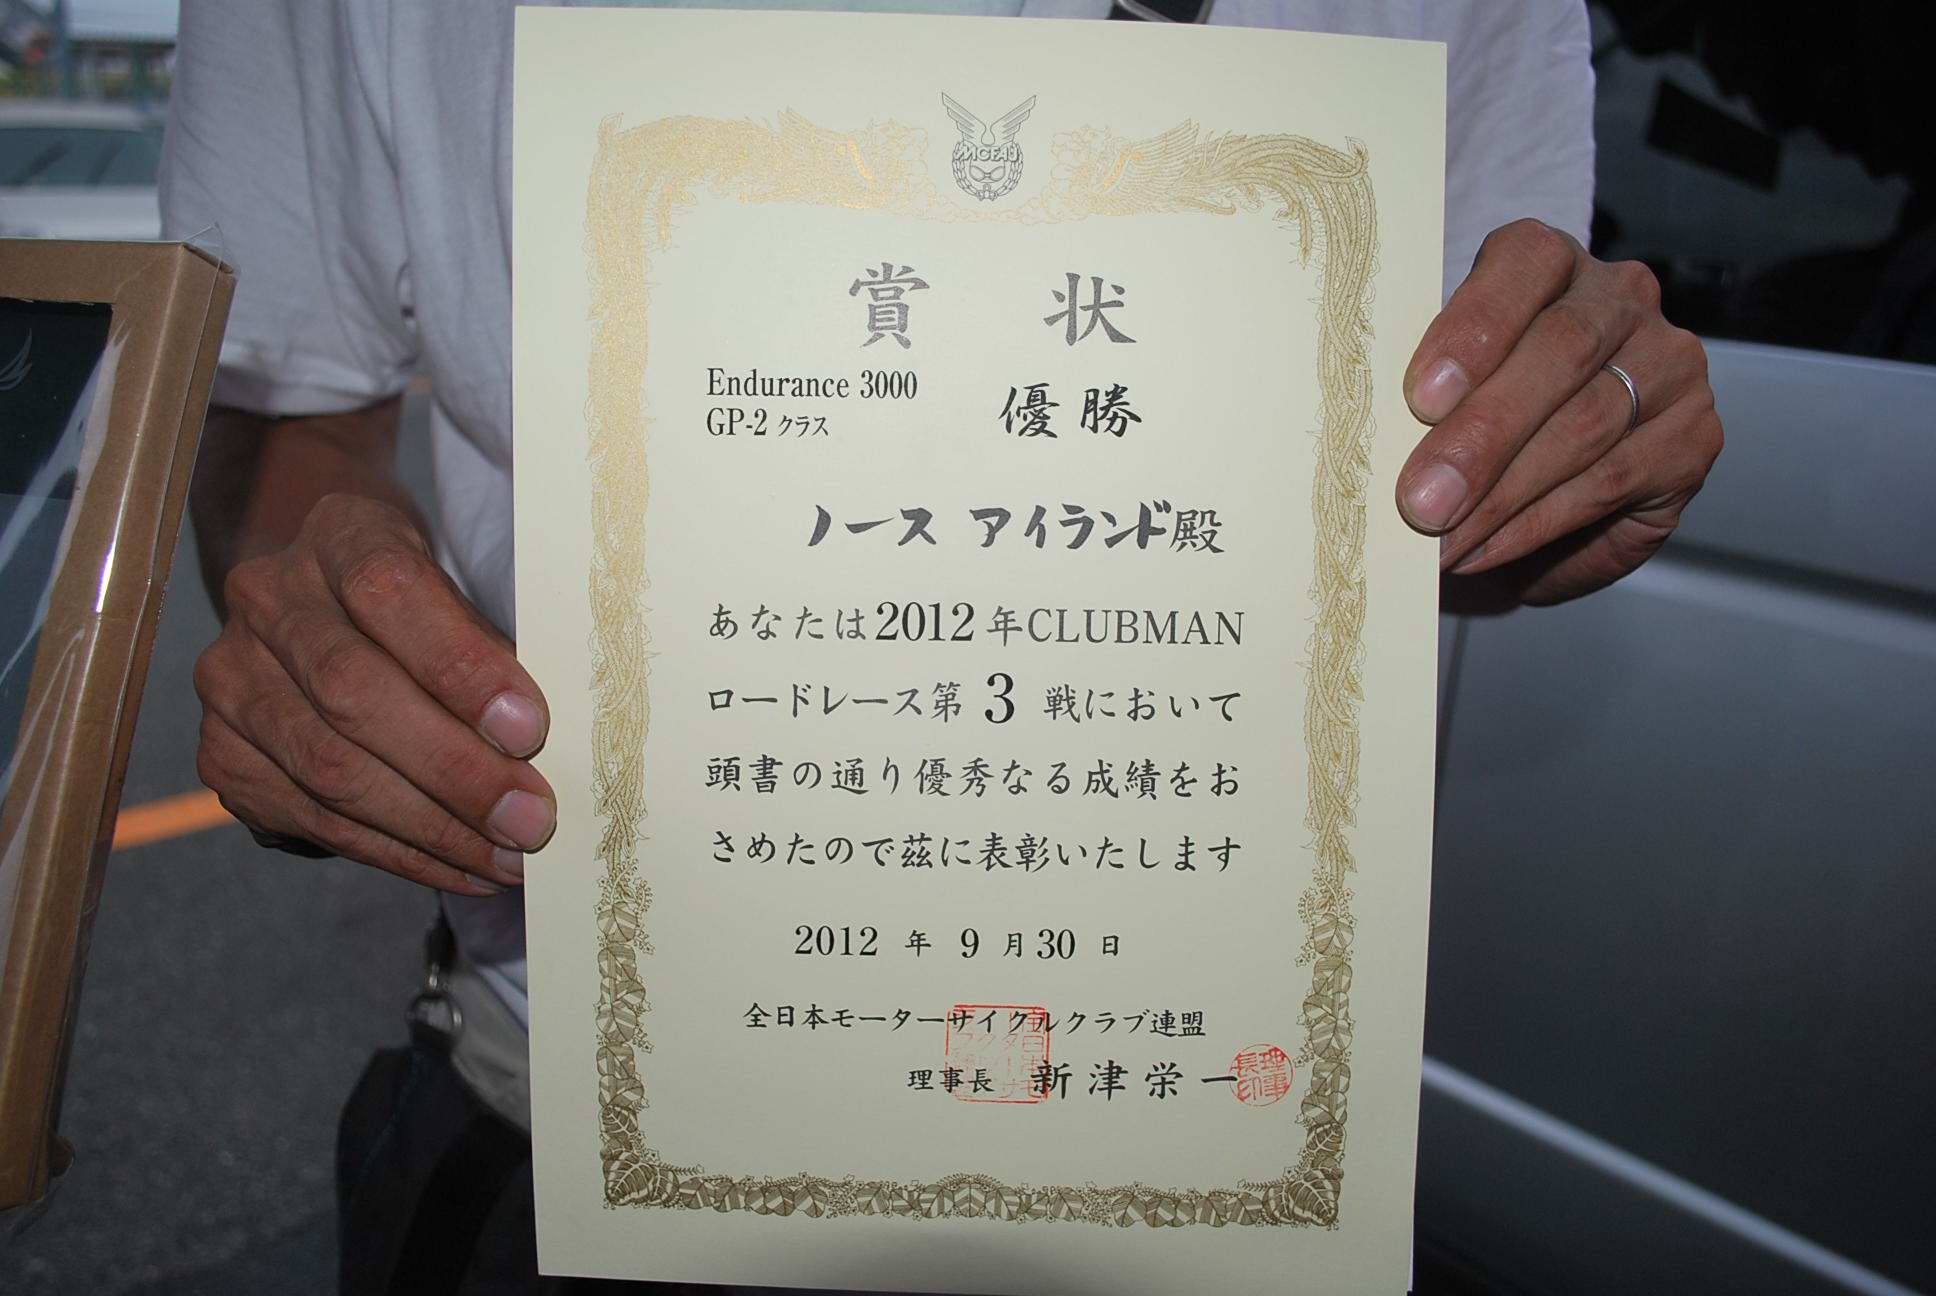 MCFAJ
賞 状
Endurance 3000
GP-2 クラス
優勝
ノース アイランド殿
あなたは2012年CLUBMAN
ロードレース第 3 戦において
頭書の通り優秀なる成績をお
さめたので茲に表彰いたします
2012 年 9 月 30 日
全日本モーターサイクルクラブ連盟
理事長 新津栄一
理事長印